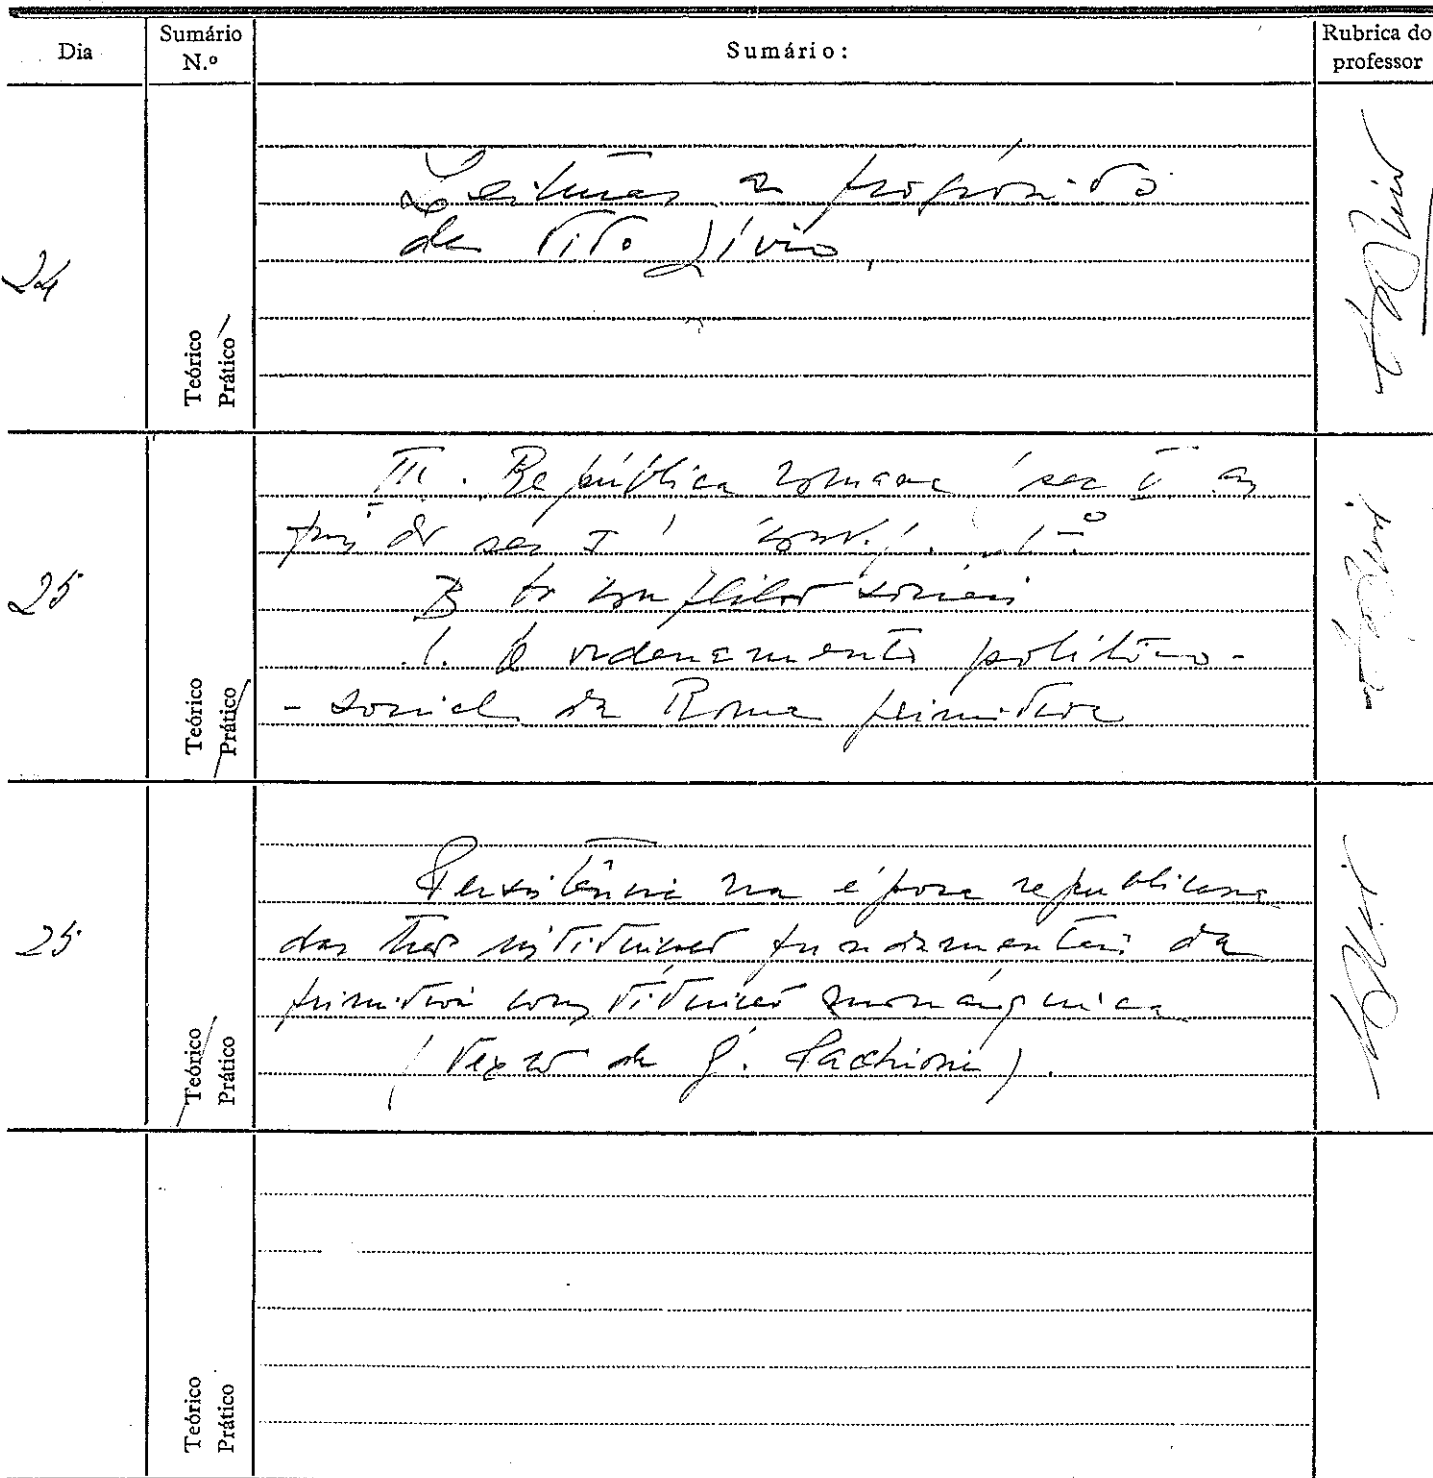 Dia
Sumário N.º
Sumário:
Rubrica do professor
24
Teórico
Prático
Leituras a propósito
de Tito Lívio.
25
Teórico
Prático
III. República romana (séc V ao
séc I
B Os conflitos sociais
1. O ordenamento político-
-social da Roma primitiva
25
Teórico
Prático
Persistência na época republicana
das três instituições fundamentais da
primitiva constituição monárquica
(Texto de G. Pacchioni).
Teórico
Prático